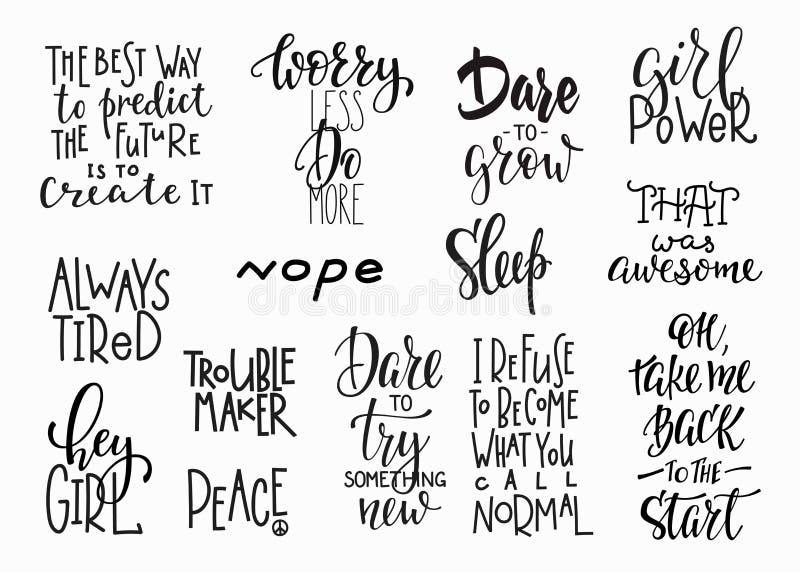 THE BEST WAY
to predict
THE FUTURE
IS TO
Create IT
Worry
LESS
Do
MORE
Dare
-TO-
grow
girl
POWER
ALWAYS
TIRED
nope
Sleep
THAT
was
awesome
hey
GIRL
TROUBLE
MAKER
PEACE
Dare
TO
try
SOMETHING
new
I REFUSE
TO BECOME
WHAT YOU
CALL
NORMAL
OH,
take me
BACK
-TO THE-
Start
dreamstime